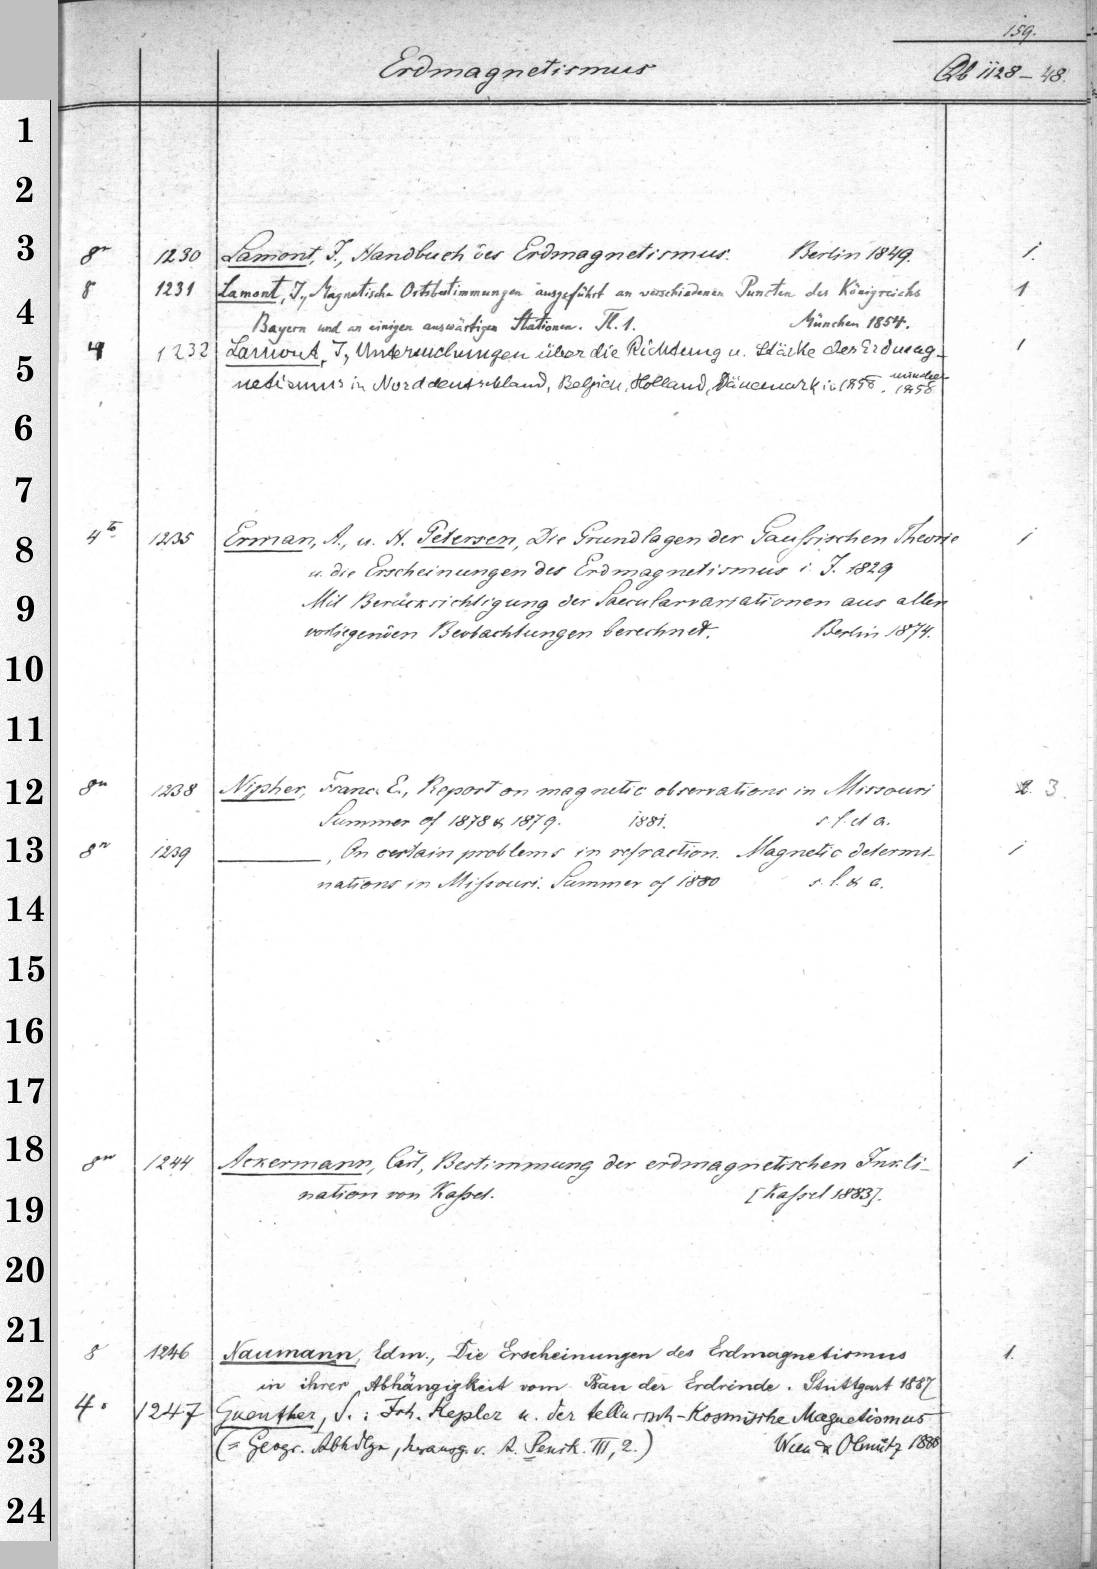 159.
Erdmagnetismus Qb 1128–48.
1
2
3 8° 1230 Lamont, J., Handbuch des Erdmagnetismus. Berlin 1849. 1.
8 1231 Lamont, J., Magnetische Ortsbestimmungen ausgeführt an verschiedenen Puncten des Königreichs 1
4 Bayern und an einigen auswärtigen Stationen. Th. 1. München 1854.
4 1232 Lamont, J., Untersuchungen über die Richtung u. Stärke des Erdmag- 1
5 netismus in Norddeutschland, Belgien, Holland, Dänemark in 1858. München 1858
6
7
8 4to 1235 Erman, A., u. H. Petersen, Die Grundlagen der Gaußischen Theorie 1
u. die Erscheinungen des Erdmagnetismus i. J. 1829
9 Mit Berücksichtigung der Saecularvariationen aus allen
vorliegenden Beobachtungen berechnet. Berlin 1874.
10
11
12 8° 1238 Nipher, Franc. E., Report on magnetic observations in Missouri 3.
Summer of 1878 & 1879. 1881. s. l. et a.
13 8° 1239 ——, On certain problems in refraction. Magnetic determi- 1
14 nations in Mißouri. Summer of 1880 s. l. & a.
15
16
17
18 8° 1244 Ackermann, Carl, Bestimmung der erdmagnetischen Inkli- 1
19 nation von Kaßel. [Kaßel 1883].
20
21 8 1246 Naumann, Edm., Die Erscheinungen des Erdmagnetismus 1.
22 in ihrer Abhängigkeit vom Bau der Erdrinde. Stuttgart 1887
4° 1247 Guenther, S.: Joh. Kepler u. der tellurisch-kosmische Magnetismus
23 (= Geogr. Abhdlgn, herausg. v. A. Penck. III, 2.) Wien & Olmütz 1888
24